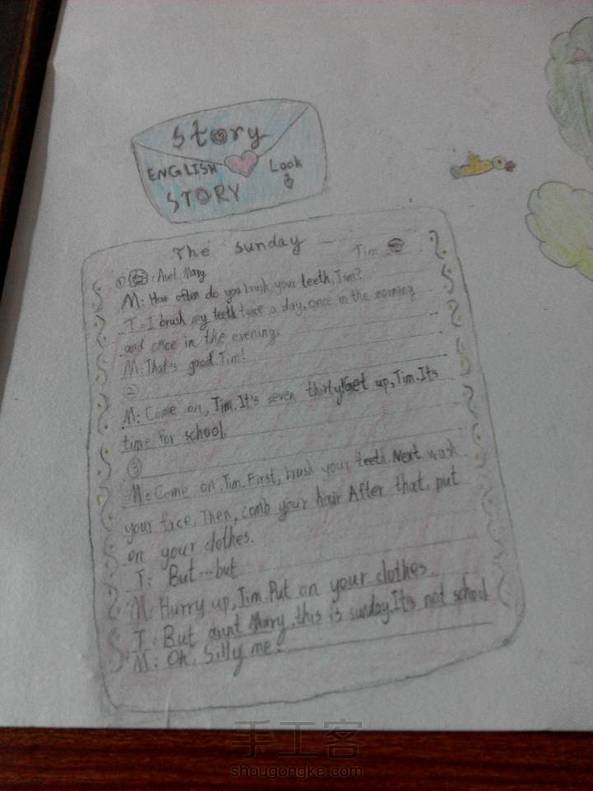 Story
ENGLISH Look
STORY
The sunday
Tim
① : Mary
M: How often do you brush your teeth, Tim?
T: I brush my teeth twice a day, once in the morning
and once in the evening.
M: That's good, Tim!
②
M: Come on, Tim. It's seven thirty. Get up, Tim. It's
time for school.
③
M: Come on, Tim. First, brush your teeth. Next wash
your face. Then, comb your hair. After that, put
on your clothes.
T: But...but
M: Hurry up, Tim. Put on your clothes.
T: But aunt Mary, this is sunday. It's not school
M: Oh. Silly me!
手工客
shougongke.com